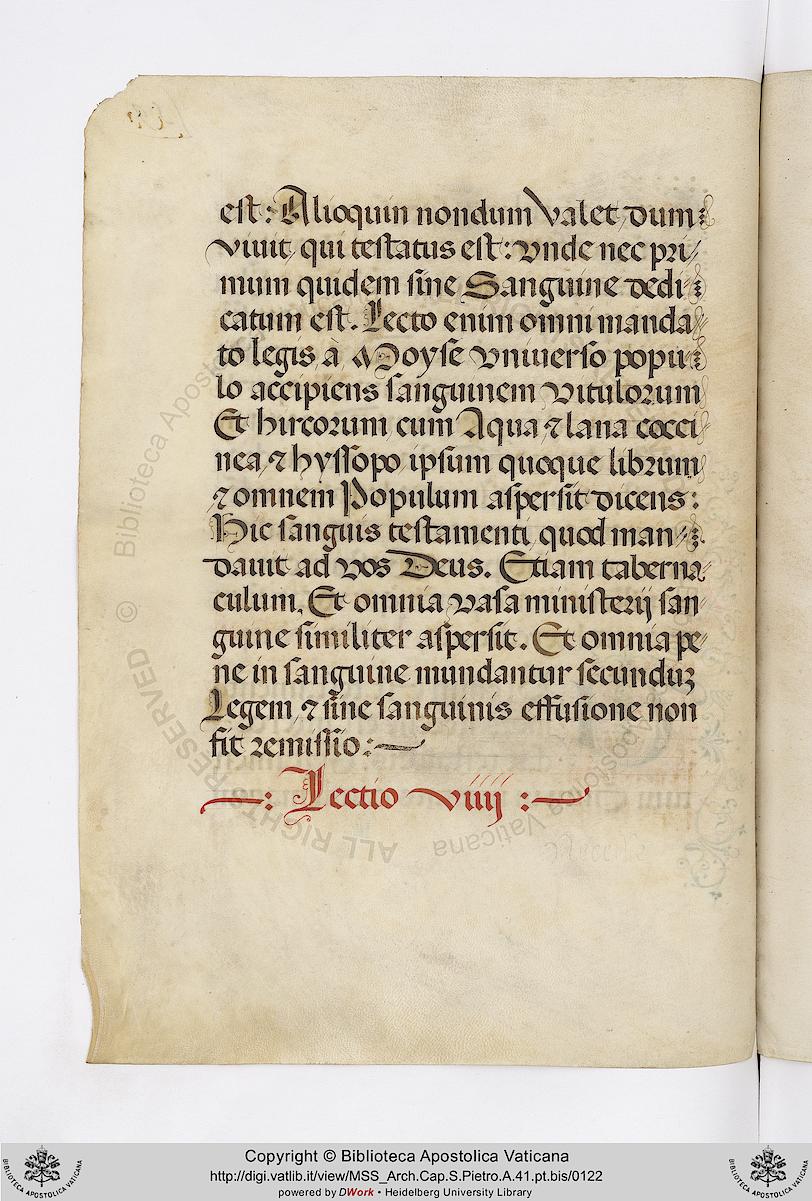 est: Alioquin nondum valet, dum
viuit, qui testatus est: vnde nec pri
mum quidem sine Sanguine dedi
catum est. Lecto enim omni manda
to legis à Moyse vniuerso popu
lo accipiens sanguinem vitulorum
Et hircorum, cum Aqua, ⁊ lana cocci
nea, ⁊ hyssopo, ipsum quoque librum
⁊ omnem Populum aspersit dicens:
Hic sanguis testamenti, quod man
dauit ad vos Deus. Etiam taberna
culum, Et omnia vasa ministerij san
guine similiter aspersit. Et omnia pe
ne in sanguine mundantur secunduꝫ
Legem, ⁊ sine sanguinis effusione non
fit remissio:
: Lectio viiij :
Necesse
Copyright © Biblioteca Apostolica Vaticana
http://digi.vatlib.it/view/MSS_Arch.Cap.S.Pietro.A.41.pt.bis/0122
powered by DWork • Heidelberg University Library
© Biblioteca Apostolica Vaticana
ALL RIGHTS RESERVED
BIBLIOTECA APOSTOLICA VATICANA
BIBLIOTECA APOSTOLICA VATICANA